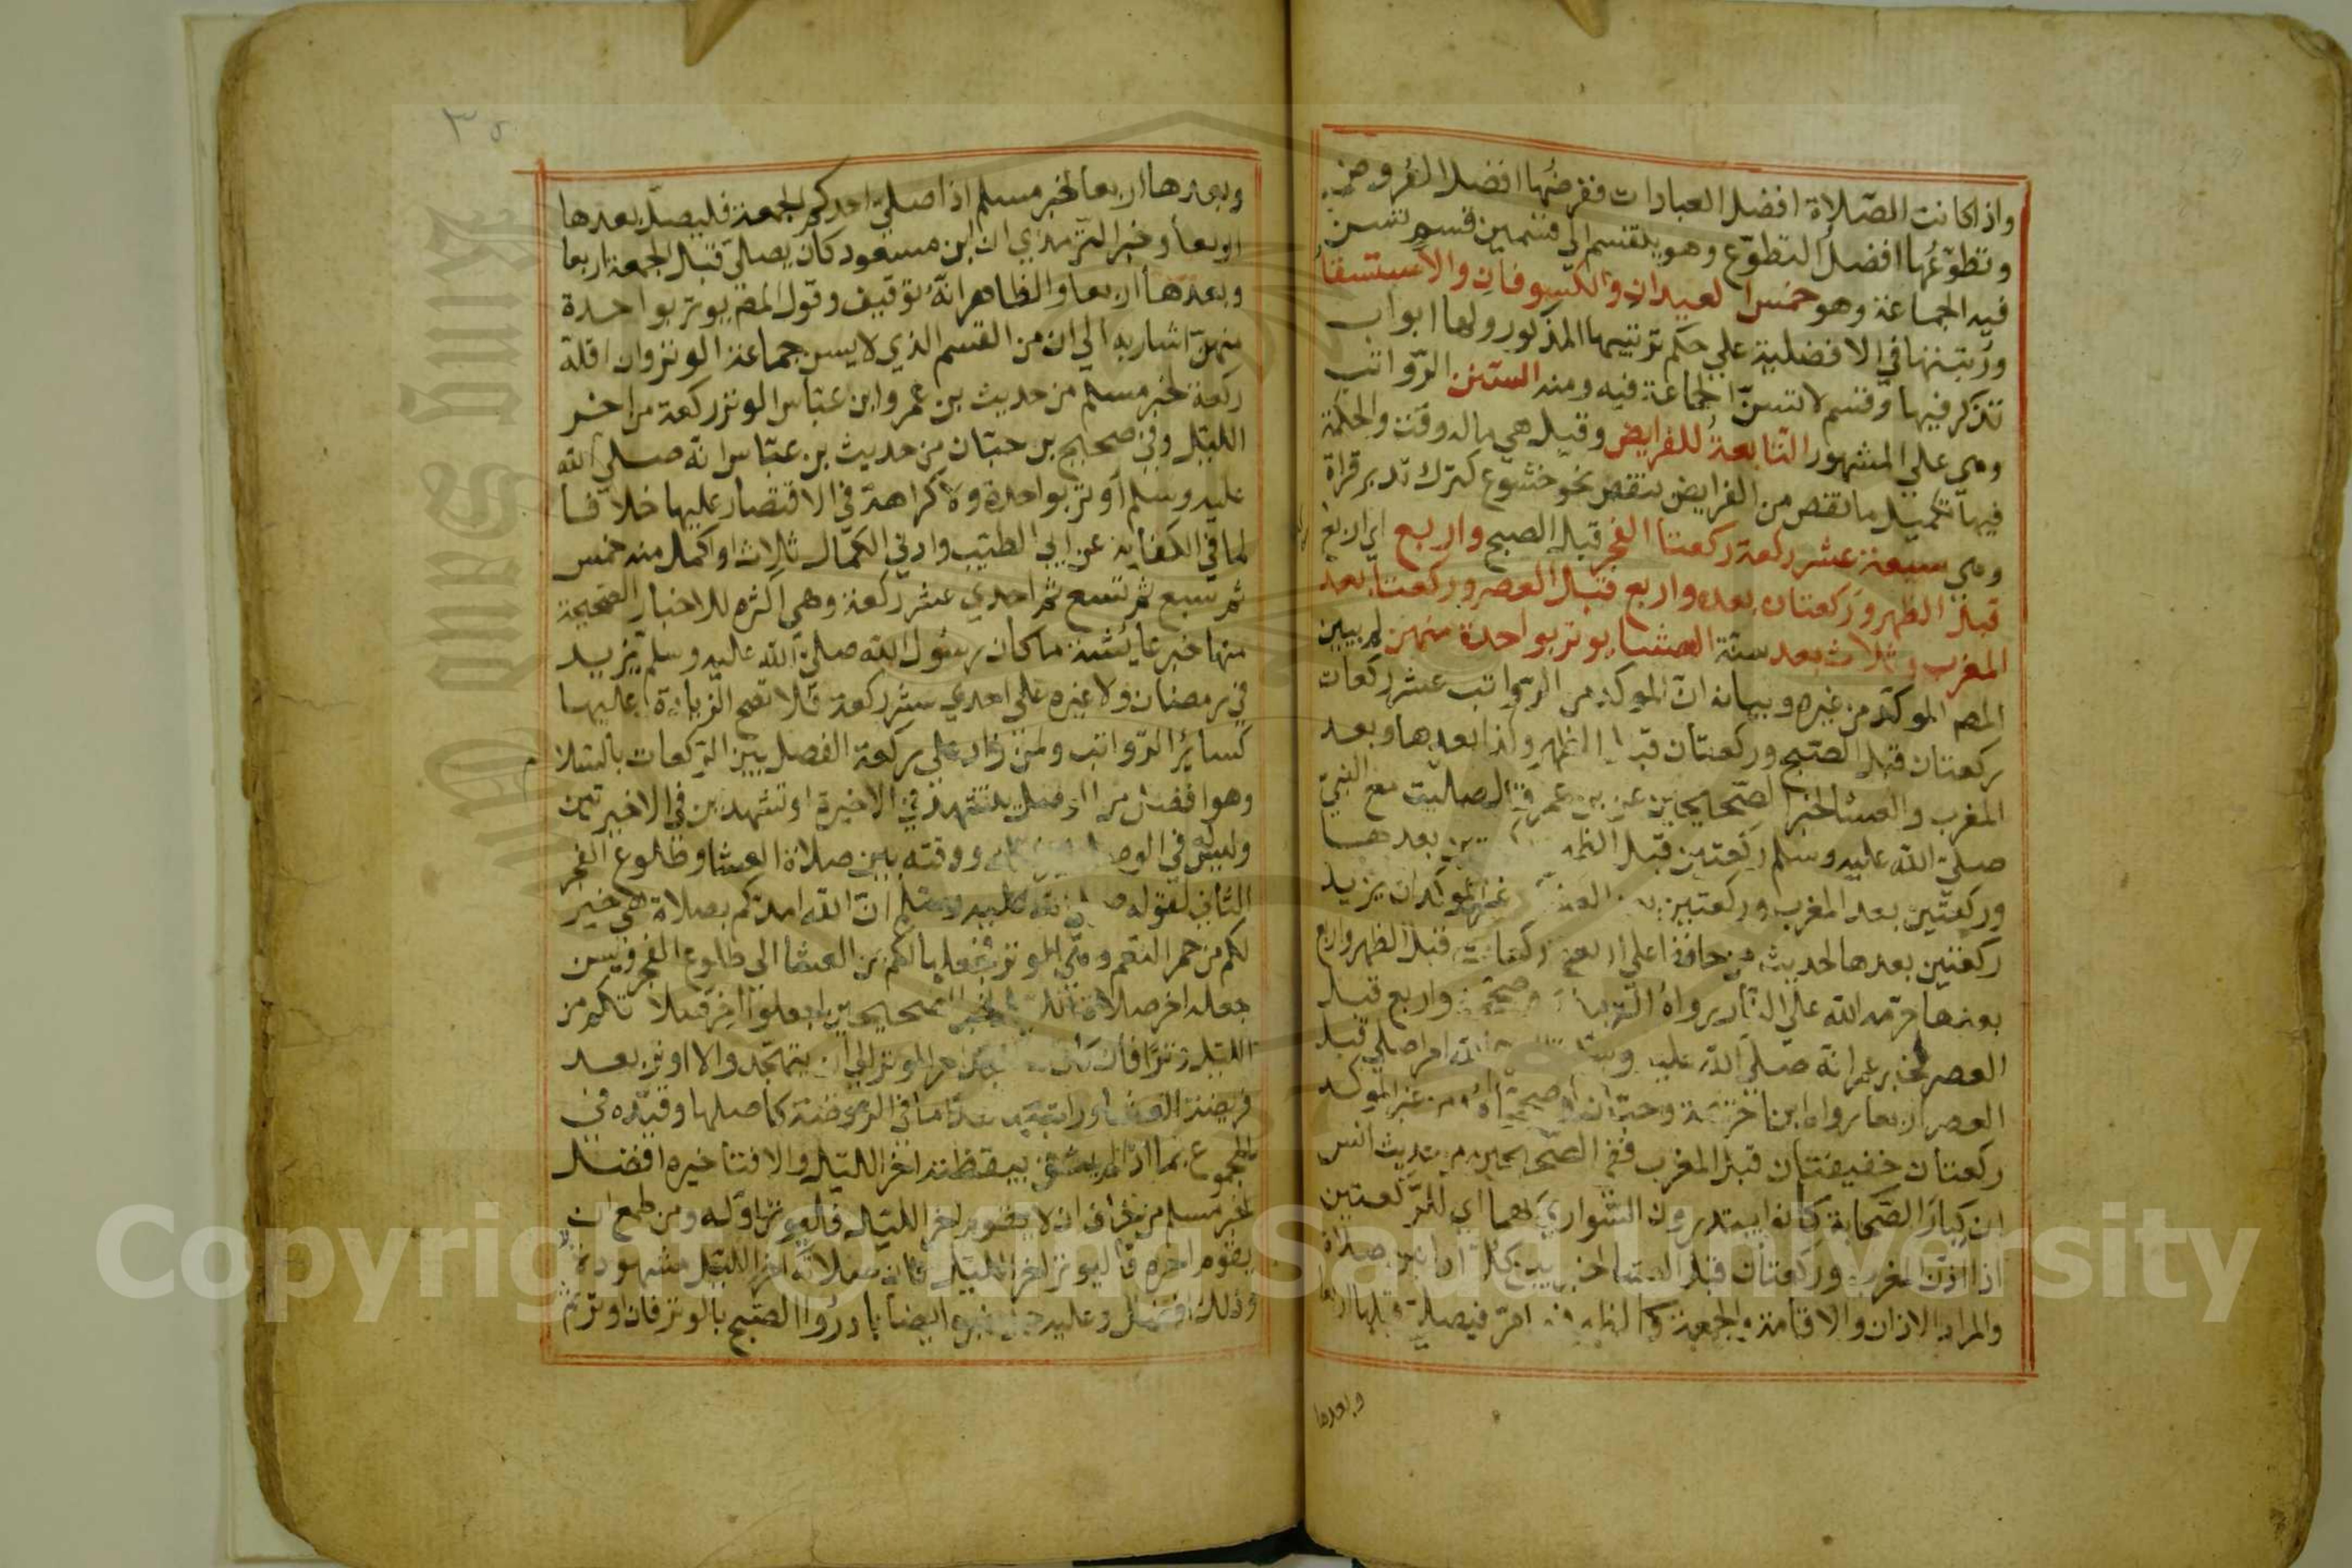 واذا كانت الصّلاة افضل العبادات ففرضُها افضل الفُروض
وتطوّعُها افضل التطوّع وهو ينقسم الي قسمين قسم تسن
فيه الجماعة وهو خمس العيدان والكسوفان والاستسقا
ورتبتها في الافضلية علي حكم ترتيبها المذكور ولها ابواب
تذكر فيها وقسم لا تسنّ الجماعة فيه ومنه السنن الرّواتب
وهي علي المشهور التابعةُ للفرايض وقيل هي ماله وقت والحكمة
فيها تكميل ما نقص من الفرايض بنقص نحو خشوع كترك تدبر قراة
وهي سبعة عشر ركعة ركعتا الفجر قبل الصبح واربع اي اربع
قبل الظهر وركعتان بعده واربع قبل العصر وركعتا بعد
المغرب وثلاث بعد سنة العشا يوتر بواحدة منهن لم يبين
المص الموكد من غيره وبيانه انّ الموكد من الرّواتب عشر ركعات
ركعتان قبل الصّبح وركعتان قبل الظهر وكذا بعدها وبعد
المغرب والعشا لخبر الصّحيحين عن بن عمر قال صليت مع النبيّ
صليّ الله عليه وسلم ركعتين قبل الظهر بعدها
وركعتين بعد المغرب وركعتين بعد العشا غير الموكد ان يزيد
ركعتين بعدها لحديث من حافظ علي اربع ركعات قبل الظهر واربع
بعدها حرّمه الله علي النّار رواهُ وصححه واربع قبل
العصر لخبر عمر انه صليّ الله عليه وسلم قال امرا صلي قبل
العصر اربعا رواه ابنا خزيمة وحبّان وصححاه ومن غير الموكد
ركعتان خفيفتان قبل المغرب ففي الصّحيحين من حديث انس
ان كبار الصّحابة كانوا يبتدرون السّواري لهما اي للرّكعتين
اذا اذّن المغرب وركعتان قبل العشا لخبر بين كلّ اذانين صلاة
والمراد الاذان والاقامة والجمعة كالظهر فيصليّ قبلها اربعا
وبعدها
٣٥
وبعدها اربعا لخبر مسلم اذا صليّ احدكم الجمعة فليصلّ بعدها
اربعا وخبر الترمذي ان ابن مسعود كان يصليّ قبل الجمعة اربعا
وبعدها اربعا والظاهر انّه توقيف وقول المص يوتر بواحدة
منهنّ اشار به الي ان من القسم الذي لا يسن جماعة الوتر وان اقله
ركعة لخبر مسلم من حديث بن عمر وابن عبّاس الوتر ركعة من اخر
الليل وفي صحيح بن حبّان من حديث بن عبّاس انّه صليّ الله
عليه وسلم اوتر بواحدة ولا كراهة في الاقتصار عليها خلافا
لما في الكفاية عن ابي الطيّب وادني الكمال ثلاث واكمل منه خمس
ثمّ سبع ثمّ تسع ثمّ احدي عشر ركعة وهي اكثره للاخبار الصّحيحة
منها خبر عايشة ما كان رسُول الله صليّ الله عليه وسلم يزيد
في رمضان ولا غيره علي احدي عشر ركعة فلا تصح الزيادة عليها
كساير الرّواتب ولمن زاد علي ركعة الفصل بين الرّكعات بالسّلام
وهو افضل من الوصل بتشهد في الاخيرة او تشهدين في الاخيرتين
وليس له في الوصل ووقته بين صلاة العشا وطلوع الفجر
الثاني لقوله صلي الله عليه وسلم انّ الله امدكم بصلاة هي خير
لكم من حمر النعم وهي الوتر فجعلها لكم من العشا الي طلوع الفجر ويسن
جعله اخر صلاة الليل لخبر الصّحيحين اجعلوا اخر صلاتكم من
الليل وترًا فان كان له تهجد اخر الوتر الي ان يتهجّد والا اوتر بعد
فريضة العشا وراتبتها هذا ما في الرّوضة كاصلها وقيّده في
المجموع بما اذا لم يثق بيقظته اخر الليل والا فتاخيره افضل
لخبر مسلم من خاف ان لا يقوم اخر الليل فليوتر اوّله ومن طمع ان
يقوم اخره فليوتر اخر الليل فان صلاة اخر الليل مشهودة
وذلك افضل وعليه حمل خبره ايضا بادرُوا الصّبح بالوتر فان اوتر ثمّ